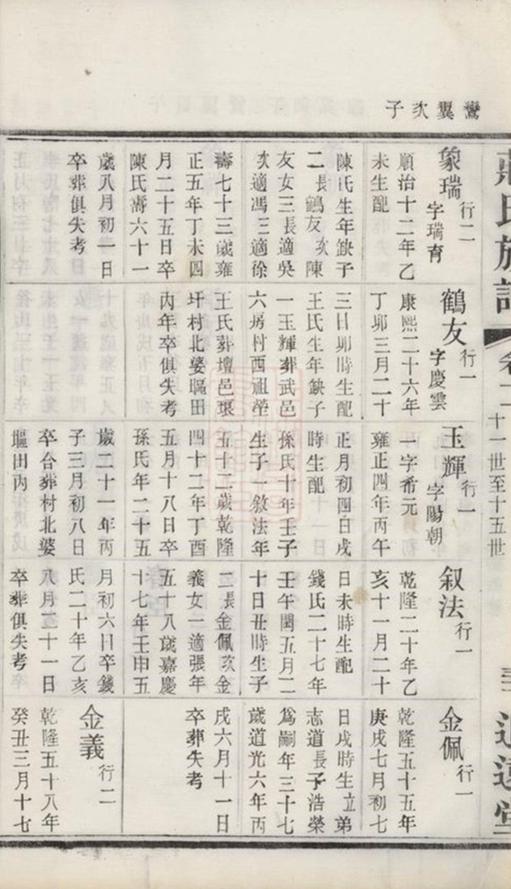 鸞翼次子
莊氏族譜
卷二
十一世至十五世
追遠堂
象瑞 行二 字瑞育
順治十二年乙
未生配
陳氏生年缺子
二長鶴友次陳
友女三長適吳
次適馮三適徐
壽七十三歲雍
正五年丁未四
月二十五日卒
陳氏壽六十一
歲八月初一日
卒葬俱失考
鶴友 行一 字慶雲
康熙二十六年
丁卯三月二十
三日卯時生配
王氏生年缺子
一玉輝葬武邑
六房村西祖塋
王氏葬壇邑張
圩村北婆田
丙年卒俱失考
玉輝 行一 字陽朝
一字希元
雍正四年丙午
正月初四日戌
時生配
孫氏十年壬子
生子一敘法年
五十二歲乾隆
四十二年丁酉
五月十八日卒
孫氏年二十五
歲二十一年丙
子三月初八日
卒合葬村北婆
田丙
叙法 行一
乾隆二十年乙
亥十一月二十
日未時生配
錢氏二十七年
壬午閏五月二
十日丑時生子
二長金佩次金
義女一適張年
五十八歲嘉慶
十七年壬申五
月初六日卒錢
氏二十年乙亥
八月二十一日
卒葬俱失考
金佩 行一
乾隆五十五年
庚戌七月初七
日戌時生立弟
志道長子浩榮
爲嗣年三十七
歲道光六年丙
戌六月十一日
卒葬失考
金義 行二
乾隆五十八年
癸丑三月十七